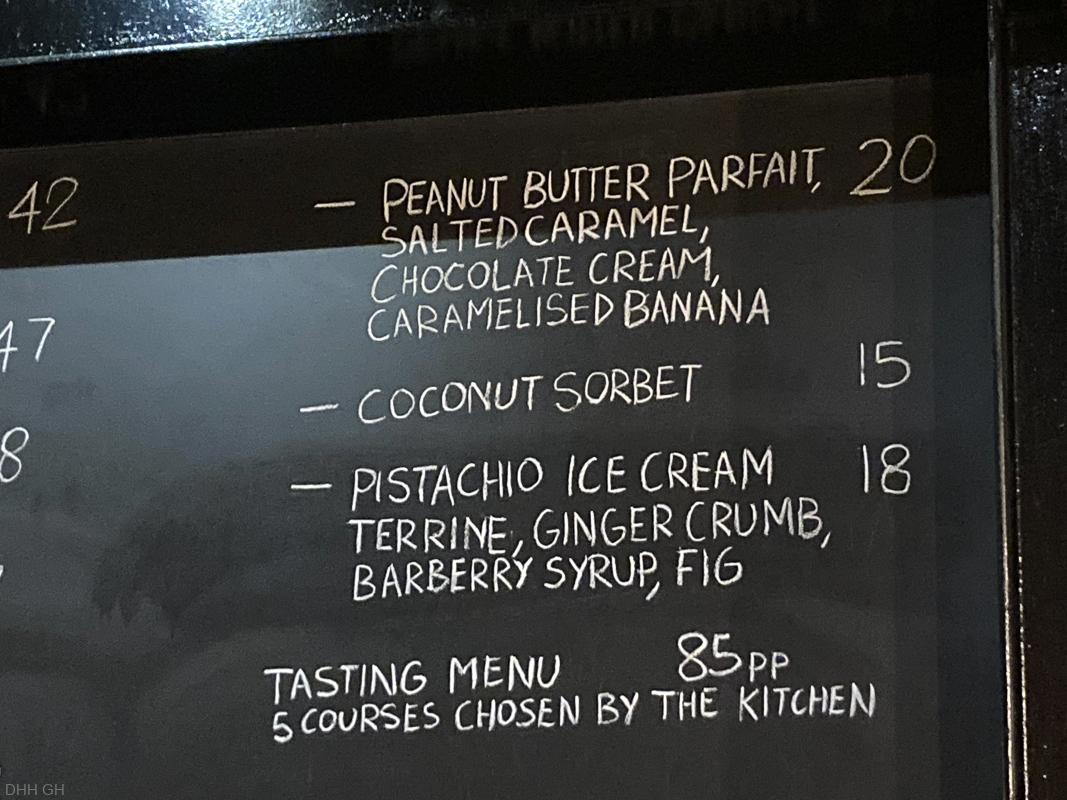 42
— PEANUT BUTTER PARFAIT, 20
SALTED CARAMEL,
CHOCOLATE CREAM,
CARAMELISED BANANA
47
— COCONUT SORBET 15
8
— PISTACHIO ICE CREAM 18
TERRINE, GINGER CRUMB,
BARBERRY SYRUP, FIG
TASTING MENU 85PP
5 COURSES CHOSEN BY THE KITCHEN
DHH GH